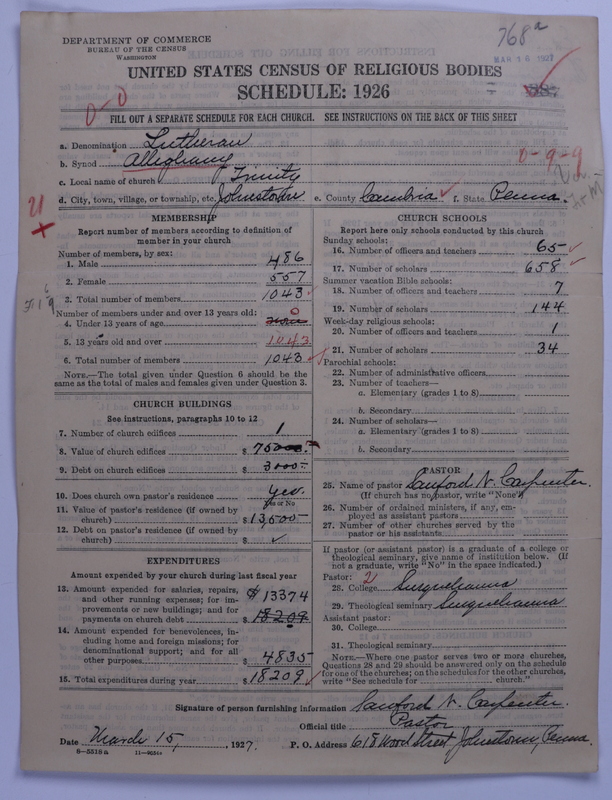 768a
DEPARTMENT OF COMMERCE
BUREAU OF THE CENSUS
WASHINGTON
MAR 16 1927
UNITED STATES CENSUS OF RELIGIOUS BODIES
SCHEDULE: 1926
0-0
FILL OUT A SEPARATE SCHEDULE FOR EACH CHURCH. SEE INSTRUCTIONS ON THE BACK OF THIS SHEET
a. Denomination Lutheran
b. Synod Alleghany
0-9-9
c. Local name of church Trinity
d. City, town, village, or township, etc. Johnstown e. County Cambria f. State Penna.
MEMBERSHIP
Report number of members according to definition of
member in your church
Number of members, by sex:
1. Male 486
2. Female 557
3. Total number of members 1043
Number of members under and over 13 years old:
4. Under 13 years of age 0
5. 13 years old and over 1043
6. Total number of members 1043
NOTE.—The total given under Question 6 should be the
same as the total of males and females given under Question 3.
CHURCH BUILDINGS
See instructions, paragraphs 10 to 12
7. Number of church edifices 1
8. Value of church edifices $ 75000.-
9. Debt on church edifices $ 3000.-
10. Does church own pastor's residence Yes.
Yes or No
11. Value of pastor's residence (if owned by
church) $ 13,500-
12. Debt on pastor's residence (if owned by
church) $
EXPENDITURES
Amount expended by your church during last fiscal year
13. Amount expended for salaries, repairs,
and other running expenses; for im-
provements or new buildings; and for
payments on church debt $ 13374
18209
14. Amount expended for benevolences, in-
cluding home and foreign missions; for
denominational support; and for all
other purposes $ 4835
15. Total expenditures during year $ 18209
CHURCH SCHOOLS
Report here only schools conducted by this church
Sunday schools:
16. Number of officers and teachers 65
17. Number of scholars 658
Summer vacation Bible schools:
18. Number of officers and teachers 7
19. Number of scholars 144
Week-day religious schools:
20. Number of officers and teachers 1
21. Number of scholars 34
Parochial schools:
22. Number of administrative officers
23. Number of teachers—
a. Elementary (grades 1 to 8)
b. Secondary
24. Number of scholars—
a. Elementary (grades 1 to 8)
b. Secondary
PASTOR
25. Name of pastor Sanford N. Carpenter.
(If church has no pastor, write "None")
26. Number of ordained ministers, if any, em-
ployed as assistant pastors
27. Number of other churches served by the
pastor or his assistants
If pastor (or assistant pastor) is a graduate of a college or
theological seminary, give name of institution below. (If
not a graduate, write "No" in the space indicated.)
Pastor: 2
28. College Susquehanna
29. Theological seminary Susquehanna
Assistant pastor:
30. College
31. Theological seminary
NOTE.—Where one pastor serves two or more churches,
Questions 28 and 29 should be answered only on the schedule
for one of the churches; on the schedules for the other churches,
write "See schedule for church."
Signature of person furnishing information Sanford N. Carpenter.
Official title Pastor
Date March 15, 1927. P. O. Address 618 Wood Street Johnstown, Penna.
8-5518a